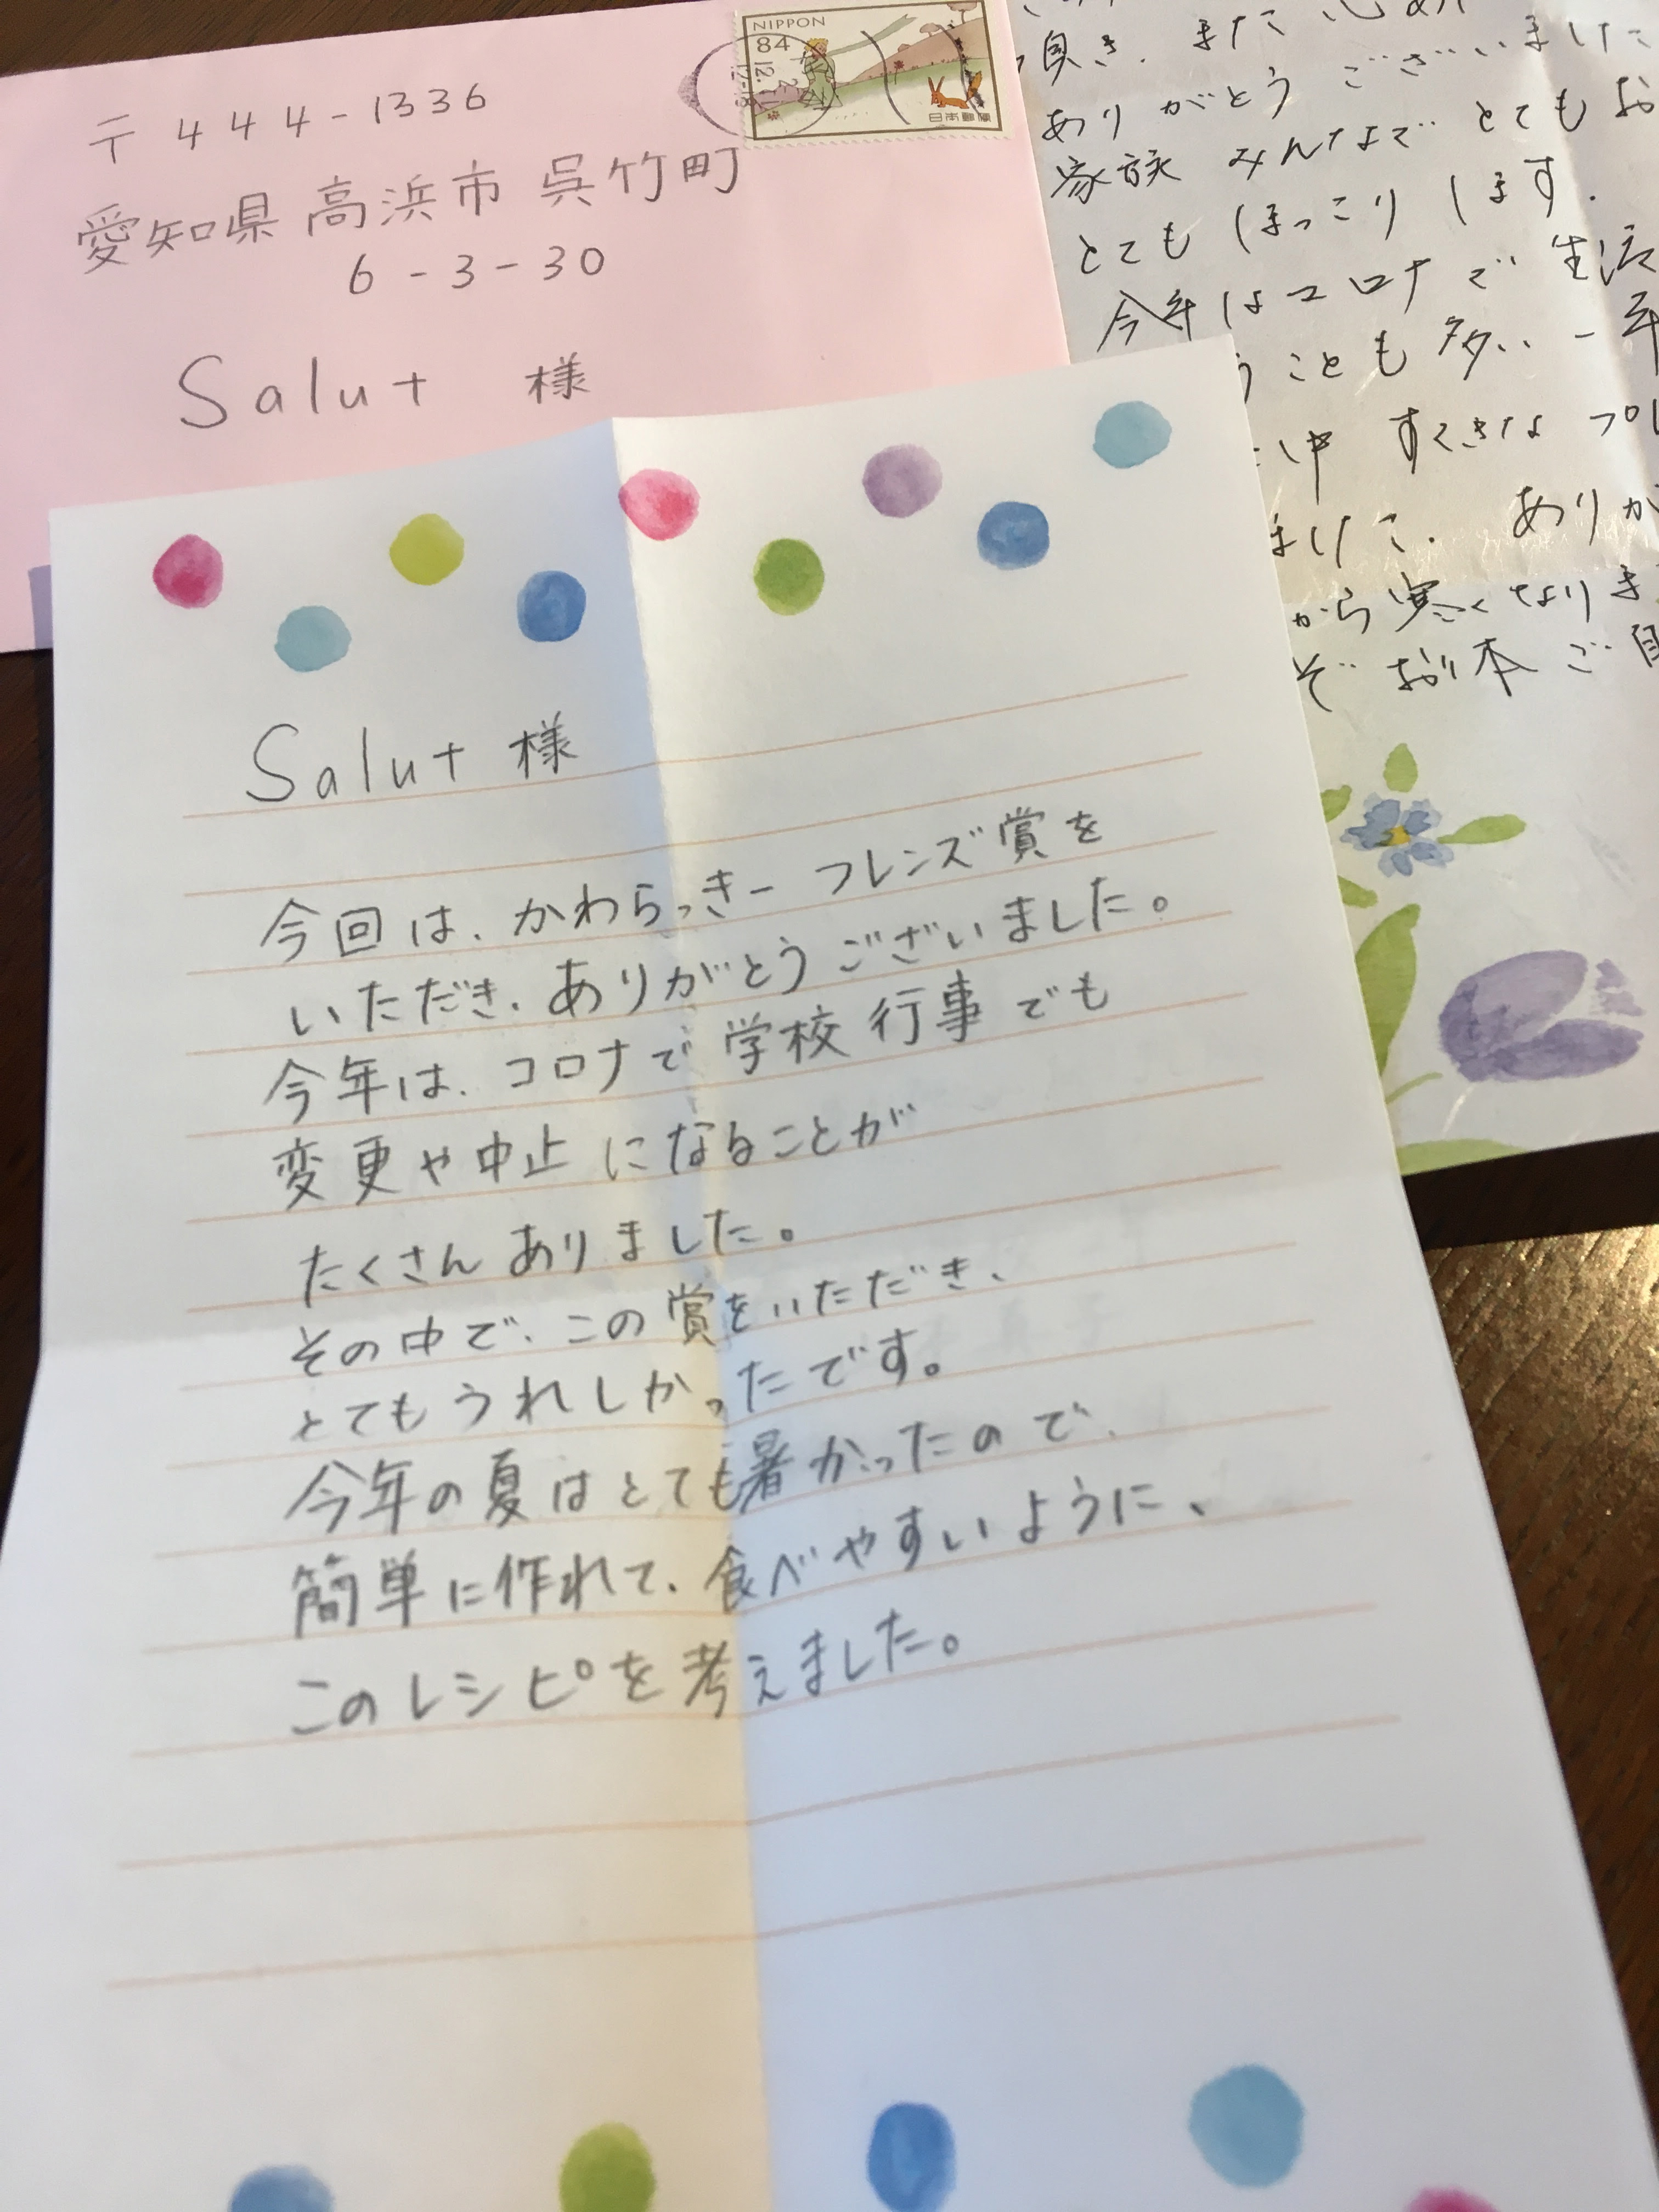 〒444-1336
愛知県高浜市呉竹町
6-3-30
Salut 様
NIPPON
84
日本郵便
Salut 様
今回は、かわらっきーフレンズ賞を
いただき、ありがとうございました。
今年は、コロナで学校行事でも
変更や中止になることが
たくさんありました。
その中で、この賞をいただき、
とてもうれしかったです。
今年の夏はとても暑かったので、
簡単に作れて、食べやすいように、
このレシピを考えました。
頂き、また
ありがとうございました
家族みんなでとてもお
とてもほっこりします。
今年はコロナで生活
うことも多い一年
中 すてきなプレ
ました。ありが
から寒くなりま
ぞお体ご自